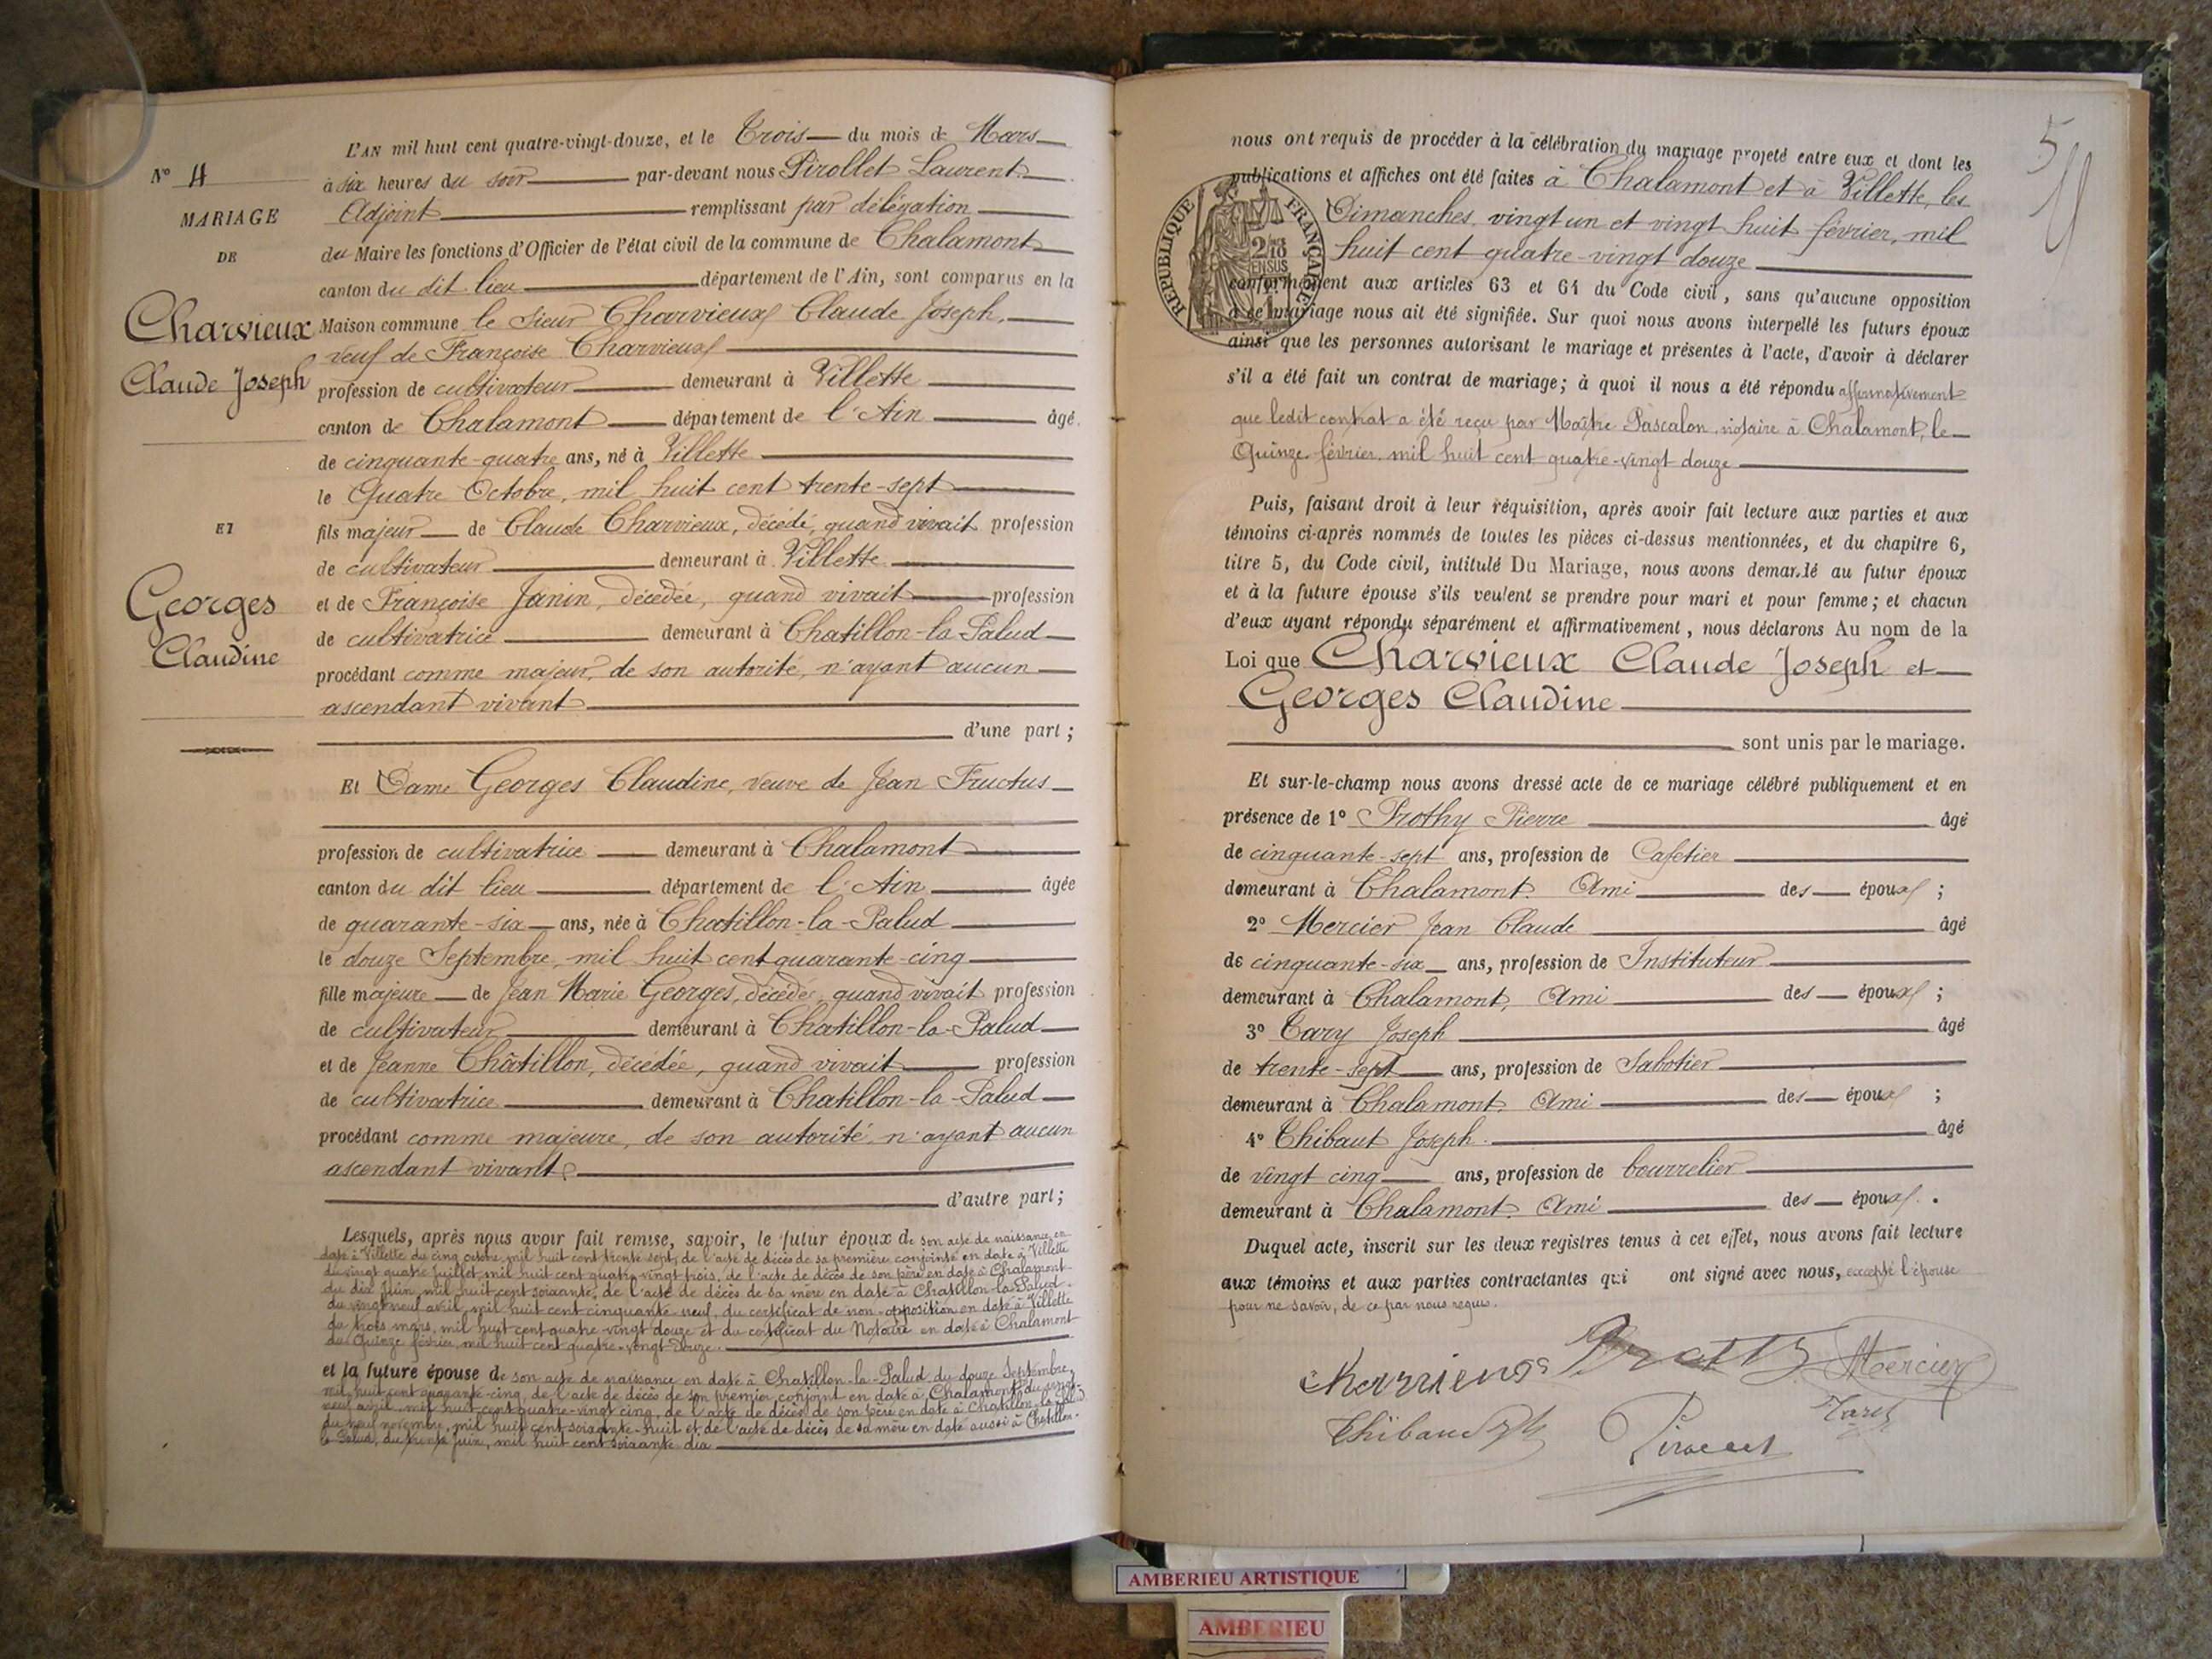 N° 4
MARIAGE
DE
Charvieux
Claude Joseph
ET
Georges
Claudine
L'AN mil huit cent quatre-vingt-douze, et le Trois du mois de Mars
à six heures du soir par-devant nous Pirollet Laurent
Adjoint remplissant par délégation
du Maire les fonctions d'Officier de l'état civil de la commune de Chalamont
canton du dit lieu département de l'Ain, sont comparus en la
Maison commune le Sieur Charvieux Claude Joseph,
veuf de Françoise Charvieux
profession de cultivateur demeurant à Villette
canton de Chalamont département de l'Ain âgé
de cinquante-quatre ans, né à Villette
le Quatre Octobre, mil huit cent trente-sept
fils majeur de Claude Charvieux, décédé, quand vivait profession
de cultivateur demeurant à Villette
et de Françoise Janin, décédée, quand vivait profession
de cultivatrice demeurant à Chatillon-la-Palud
procédant comme majeur, de son autorité, n'ayant aucun
ascendant vivant
d'une part;
Et Dame Georges Claudine, veuve de Jean Fructus
profession de cultivatrice demeurant à Chalamont
canton du dit lieu département de l'Ain âgée
de quarante-six ans, née à Chatillon-la-Palud
le douze Septembre, mil huit cent quarante-cinq
fille majeure de Jean Marie Georges, décédé, quand vivait profession
de cultivateur demeurant à Chatillon-la-Palud
et de Jeanne Châtillon, décédée, quand vivait profession
de cultivatrice demeurant à Chatillon-la-Palud
procédant comme majeure, de son autorité n'ayant aucun
ascendant vivant
d'autre part;
Lesquels, après nous avoir fait remise, savoir, le futur époux de son acte de naissance, en
date à Villette du cinq octobre mil huit cent trente sept, de l'acte de décès de sa première conjointe en date à Villette
du vingt quatre Juillet mil huit cent quatre vingt trois, de l'acte de décès de son père en date à Chalamont
du dix Juin mil huit cent soixante, de l'acte de décès de sa mère en date à Chatillon-la-Palud
du vingt neuf avril mil huit cent cinquante neuf, du certificat de non-opposition en date à Villette
du trois mars, mil huit cent quatre-vingt douze et du certificat du Notaire en date à Chalamont
du Quinze février mil huit cent quatre-vingt-douze.
et la future épouse de son acte de naissance en date à Chatillon-la-Palud du douze Septembre
mil huit cent quarante-cinq, de l'acte de décès de son premier conjoint en date à Chalamont du vingt-
neuf avril mil huit cent quatre-vingt cinq, de l'acte de décès de son père en date à Chatillon-la-Palud
du neuf novembre, mil huit cent soixante-huit et de l'acte de décès de sa mère en date aussi à Chatillon-
la-Palud, du trente Juin, mil huit cent soixante dix
5
nous ont requis de procéder à la célébration du mariage projeté entre eux et dont les
publications et affiches ont été faites à Chalamont et à Villette, les
Dimanches, vingt un et vingt huit février, mil
huit cent quatre-vingt douze
REPUBLIQUE FRANÇAISE
2/10 EN SUS
conformément aux articles 63 et 64 du Code civil, sans qu'aucune opposition
à ce mariage nous ait été signifiée. Sur quoi nous avons interpellé les futurs époux
ainsi que les personnes autorisant le mariage et présentes à l'acte, d'avoir à déclarer
s'il a été fait un contrat de mariage; à quoi il nous a été répondu affirmativement
que ledit contrat a été reçu par Maître Pascalon, notaire à Chalamont, le
Quinze février mil huit cent quatre-vingt douze
Puis, faisant droit à leur réquisition, après avoir fait lecture aux parties et aux
témoins ci-après nommés de toutes les pièces ci-dessus mentionnées, et du chapitre 6,
titre 5, du Code civil, intitulé Du Mariage, nous avons demandé au futur époux
et à la future épouse s'ils veulent se prendre pour mari et pour femme; et chacun
d'eux ayant répondu séparément et affirmativement, nous déclarons Au nom de la
Loi que Charvieux Claude Joseph et
Georges Claudine
sont unis par le mariage.
Et sur-le-champ nous avons dressé acte de ce mariage célébré publiquement et en
présence de 1° Prothy Pierre âgé
de cinquante-sept ans, profession de Cafetier
demeurant à Chalamont. Ami des époux;
2° Mercier Jean Claude âgé
de cinquante-six ans, profession de Instituteur
demeurant à Chalamont, Ami des époux;
3° Tavy Joseph âgé
de trente-sept ans, profession de Sabotier
demeurant à Chalamont. Ami des époux;
4° Thibaut Joseph. âgé
de vingt cinq ans, profession de bourrelier
demeurant à Chalamont. Ami des époux.
Duquel acte, inscrit sur les deux registres tenus à cet effet, nous avons fait lecture
aux témoins et aux parties contractantes qui ont signé avec nous, excepté l'épouse
pour ne savoir, de ce par nous requis.
Mercier
Thibaud
AMBERIEU ARTISTIQUE
AMBERIEU